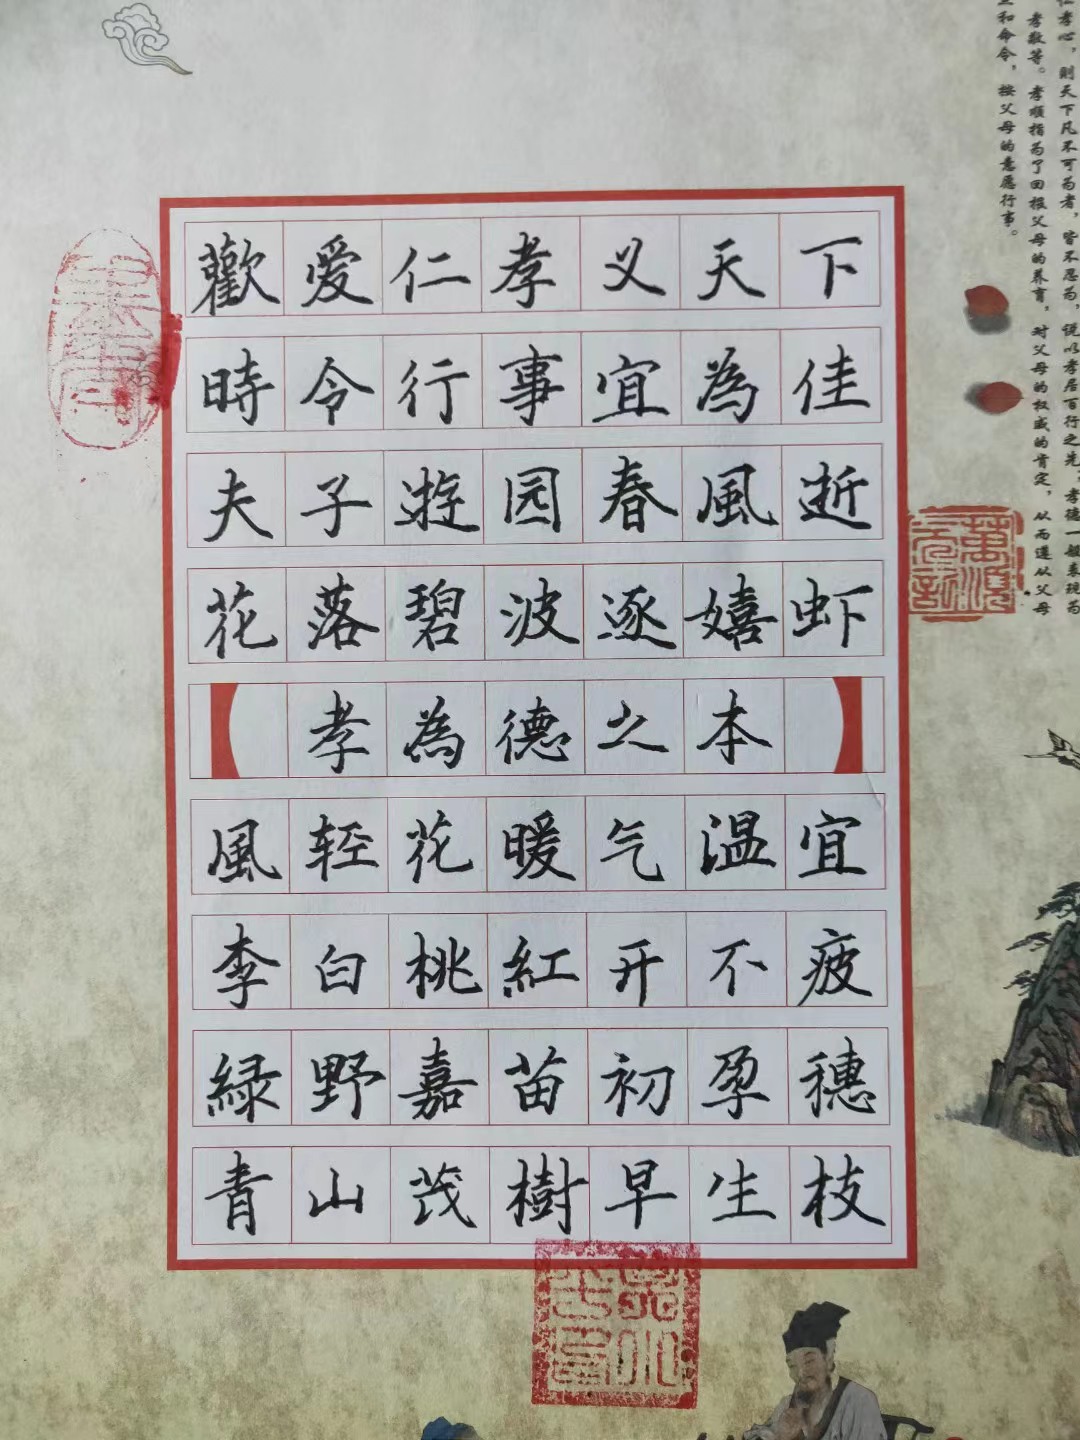 歡爱仁孝义天下
時令行事宜為佳
夫子遊园春風逝
花落碧波逐嬉虾
孝為德之本
風轻花暖气温宜
李白桃紅开不疲
緑野嘉苗初孕穗
青山茂樹早生枝
孝心，则天下凡不可为者，皆不忍为，说以孝居百行之先，孝德一般表现为
孝敬等。孝顺指为了回报父母的养育，对父母的权威的肯定，从而遵从父母
和命令，按父母的意愿行事。